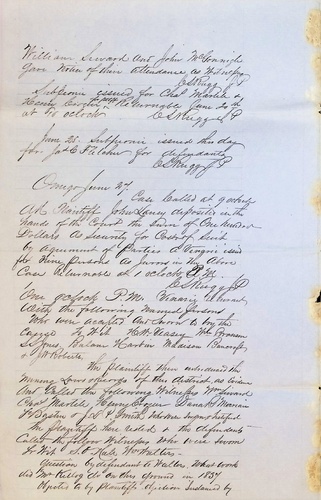 William Seward and John McGonigle
Gave Notice of their Attendance as Witnesses
C S Rugg J P
Subpoenie issued for Chal Markle &
Henry Cogger Returnable June 24th
at 10 oclock C S Rugg J P
June 25 Subpoenie issued this day
for Jas C Fletcher for defendants
C S Rugg J P
Omego June 27
Case Called at 9 oclock
A.M. Plaintiff John Laney deposites in the
hands of the Court the Sum of One Hundred
Dollars as Security for Costs of Suit
by agreement of Parties a Venire issued
for Nine persons as Jurors in the Above
Case Returnable at 1 oclock P.M.
C S Rugg J P
One oclock P.M. Venire returned
With the following Named persons
Who were accepted And Sworn to try the
Cause To Wit
S. Jones, Balam Harbin Madison
& J W Roberts
The plaintiff then introduced the
Mining Laws of this district, as evidence
And Called the following Witnesses Wm Seward
Chas Markle, Henry Cogger Daniel
& J. S. Smith who were Sworn & testified
The plaintiffs here rested & the defendants
Called the follow Witnesses Who were Sworn
to Wit S. C. Hale Wm Walters
Question by defendant to Walters, What work
did McKellog do on this Ground in 1857
Objected to by plaintiffs objection Sustained by